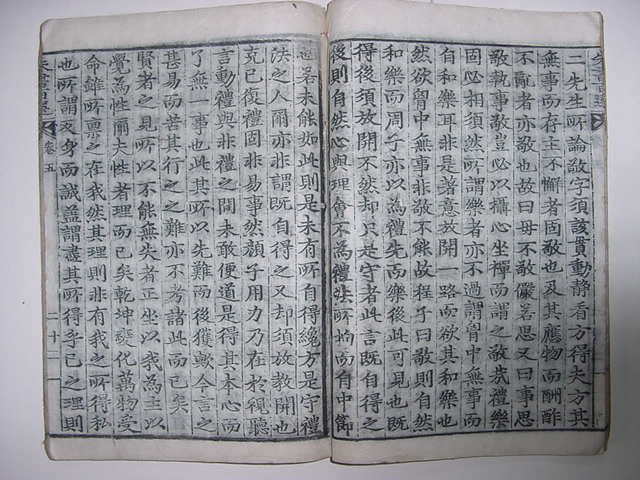 二先生所論敬字須該貫動靜看方得夫方其
無事而存主不懈者固敬也及其應物而酬酢
不亂者亦敬也故曰毋不敬儼若思又曰事思
敬執事敬豈必以攝心坐禪而謂之敬哉禮樂
固必相須然所謂樂者亦不過謂胷中無事而
自和樂耳非是著意放開一路而欲其和樂也
然欲胷中無事非敬不能故程子曰敬則自然
和樂而周子亦以為禮先而樂後此可見也既
得後須放開不然却只是守者此言既自得之
後則自然心與理會不為禮法所拘而自中節
也若未能如此則是未有所自得纔方是守禮
法之人爾亦非謂既自得之又却須放教開也
克已復禮固非易事然顏子用力乃在於視聽
言動禮與非禮之間未敢便道是得其本心而
了無一事也此其所以先難而後獲歟今言之
甚易而苦其行之之難亦不考諸此而已矣
賢者之見所以不能無失者正坐以我為主以
覺為性爾夫性者理而已矣乾坤變化萬物受
命雖所禀之在我然其理則非有我之所得私
也所謂反身而誠蓋謂盡其所得乎已之理則
朱書百選 卷五 二十一